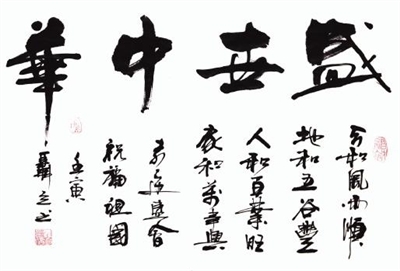 盛世中華
天和風雨順
地和五谷豐
人和百業旺
家和萬事興
幸逢盛會
祝福祖國
壬寅